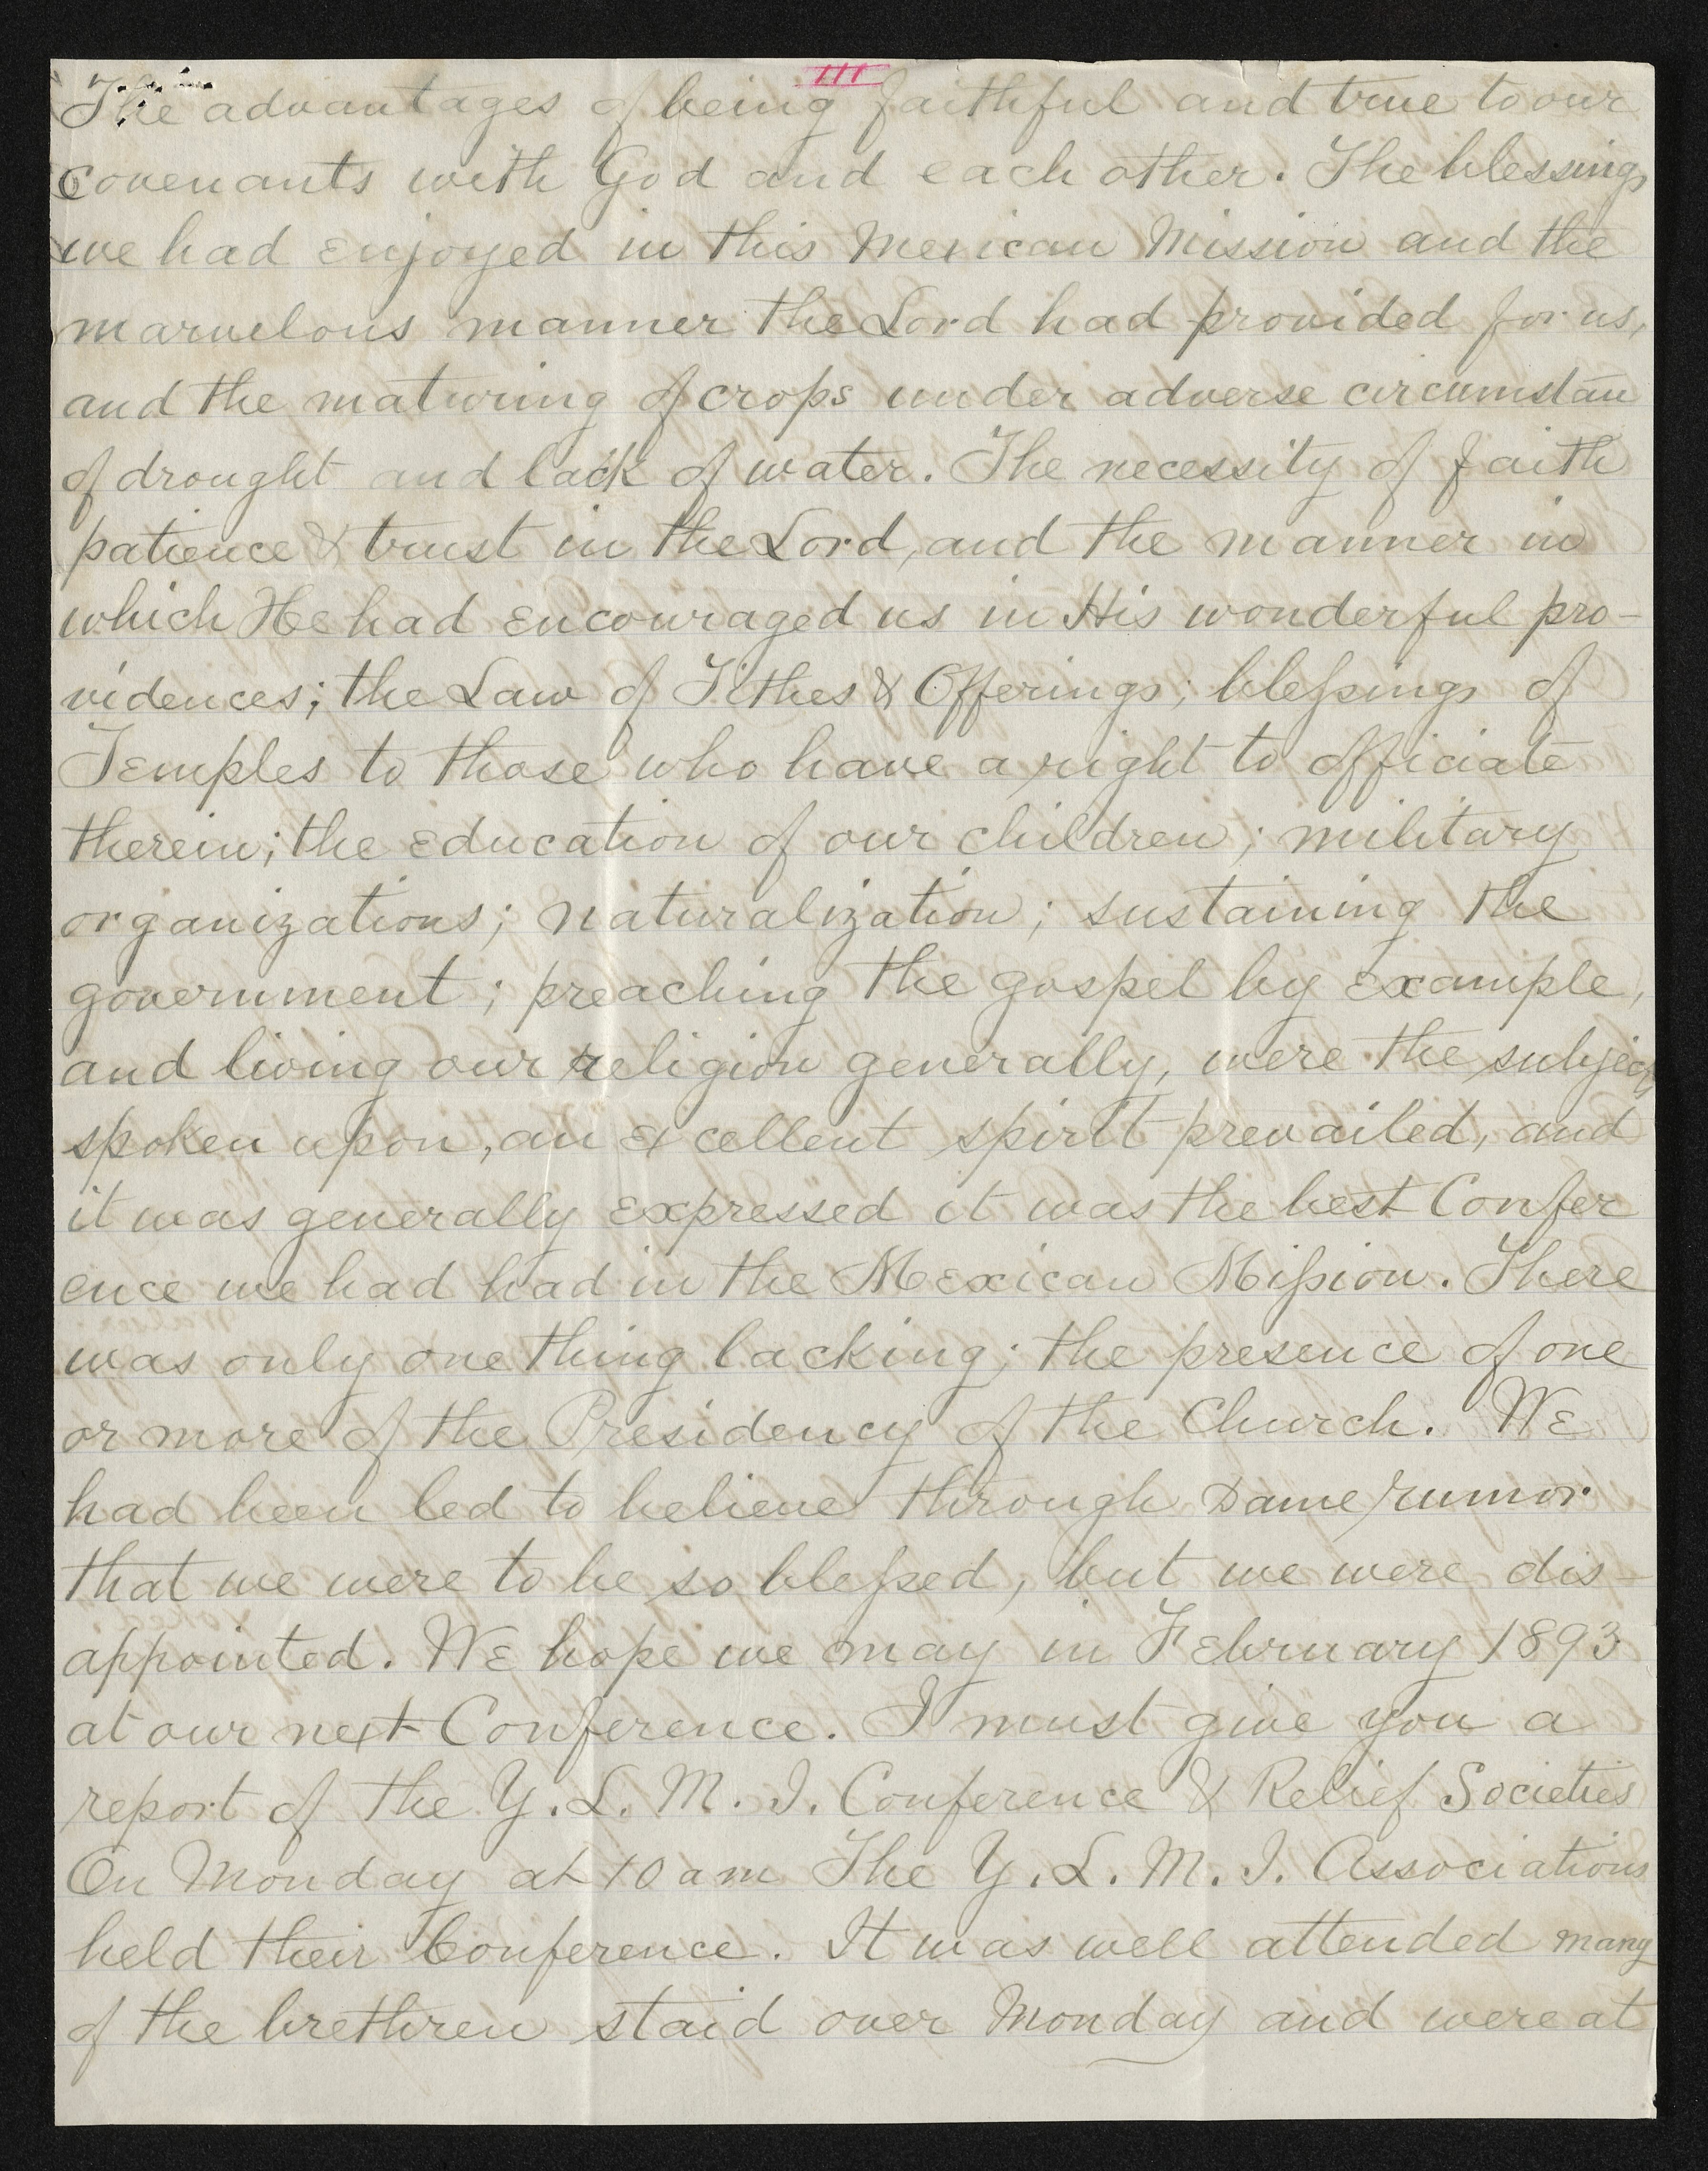 III
The advantages of being faithful and true to our
covenants with God and each other. The blessings
we had enjoyed in this Mexican Mission and the
marvelous manner the Lord had provided for us,
and the maturing of crops under adverse circumstan
of drought and lack of water. The necessity of faith
patience & trust in the Lord, and the manner in
which He had encouraged us in His wonderful pro-
vidences; the Law of Tithes & Offerings; blessings of
Temples to those who have a right to officiate
therein; the education of our children; military
organizations; naturalization; sustaining the
government; preaching the gospel by example,
and living our religion generally, were the subjects
spoken upon, an excellent spirit prevailed, and
it was generally expressed it was the best Confer
ence we had had in the Mexican Mission. There
was only one thing lacking; the presence of one
or more of the Presidency of the Church. We
had been led to believe through Dame rumor
that we were to be so blessed, but we were dis-
appointed. We hope we may in February 1893
at our next Conference. I must give you a
report of the Y. L. M. I. Conference & Relief Societies
On Monday at 10 am The Y. L. M. I. Associations
held their Conference. It was well attended many
of the brethren staid over Monday and were at